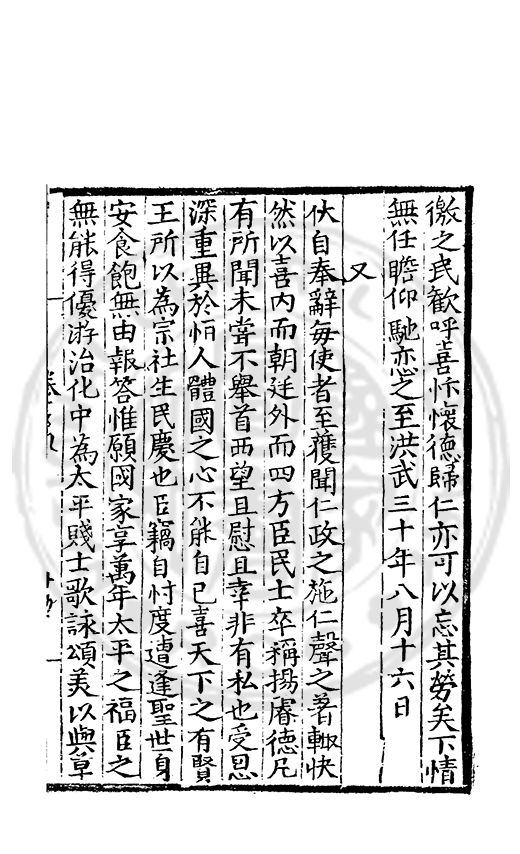 徼之民歡呼喜忭懷德歸仁亦可以忘其勞矣下情
無任瞻仰馳戀之至洪武三十年八月十六日
又
伏自奉辭每使者至獲聞仁政之施仁聲之著輙快
然以喜内而朝廷外而四方臣民士卒稱揚睿德凡
有所聞未嘗不舉首西望且慰且幸非有私也受恩
深重異於恒人體國之心不能自已喜天下之有賢
王所以為宗社生民慶也臣竊自忖度遭逢聖世身
安食飽無由報答惟願國家享萬年太平之福臣之
無能得優游治化中為太平賤士歌詠頌美以與草